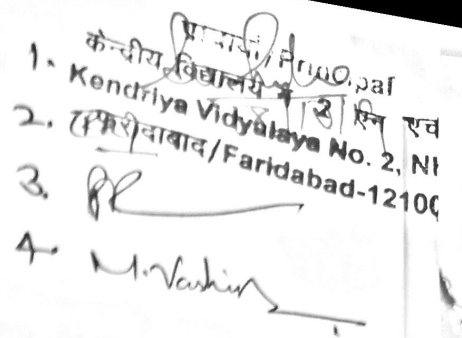 प्राचार्य/Principal
1. केन्द्रीय विद्यालय 2 एन एच
Kendriya Vidyalaya No. 2, NH
2. फरीदाबाद/Faridabad-12100
3.
4. M.Vashin